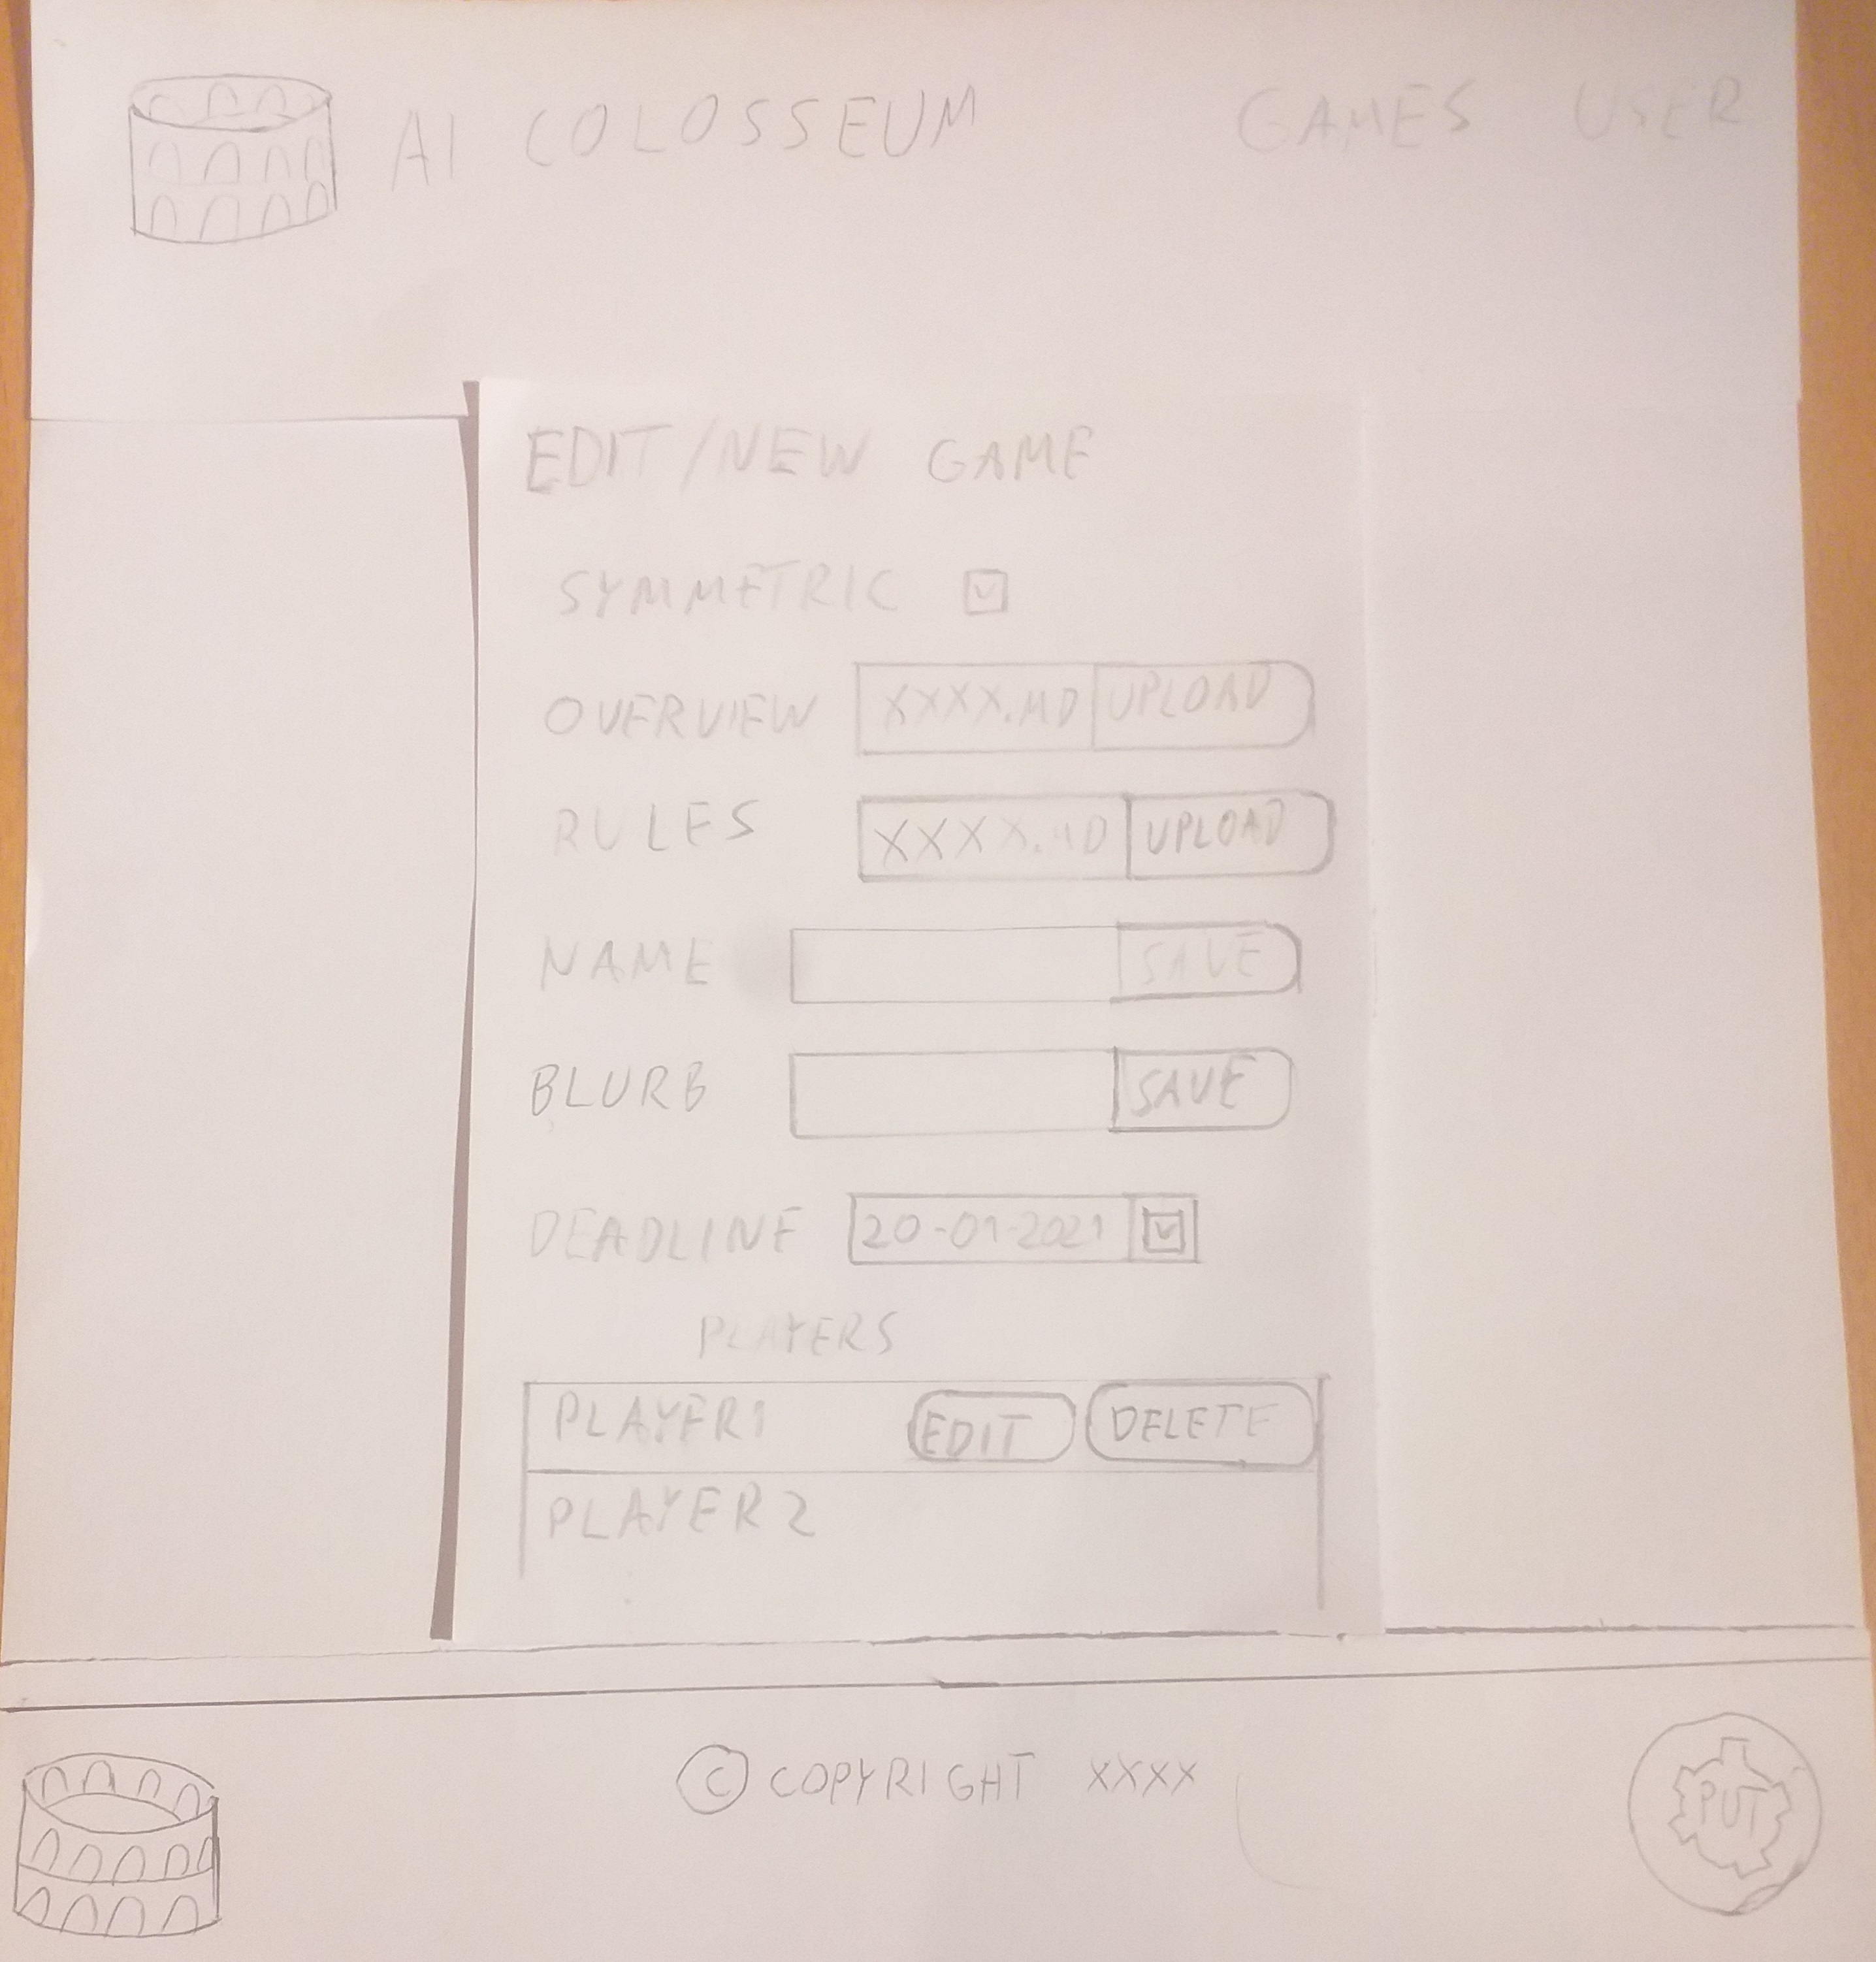 AI COLOSSEUM GAMES USER
EDIT/NEW GAME
SYMMETRIC
OVERVIEW XXXX.MD UPLOAD
RULES XXXX.MD UPLOAD
NAME SAVE
BLURB SAVE
DEADLINE 20-01-2021
PLAYERS
PLAYER1 EDIT DELETE
PLAYER2
© COPYRIGHT XXXX
PUT